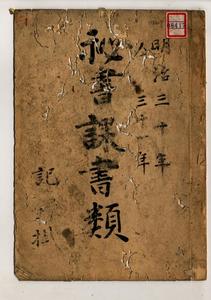 明治三十年
三十一年
秘書課書類
記 掛